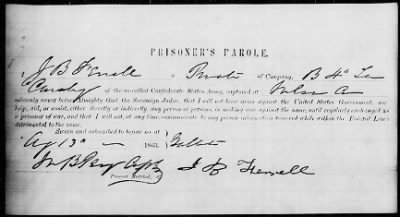 PRISONER'S PAROLE.
I J B Fewell a Private of Company, B 4th
Cavalry of the so-called Confederate States Army, captured at
solemnly swear before Almighty God the Sovereign Judge, that I will not bear arms against the United States Government, nor
help, aid, or assist, either directly or indirectly, any person or persons, in making war against the same, until regularly exchanged as
a prisoner of war, and that I will not, at any time, communicate to any person information received within the Federal Lines
detrimental to the same.
Sworn and subscribed to before me at
1863.
J B Fewell
Provost Marshal.